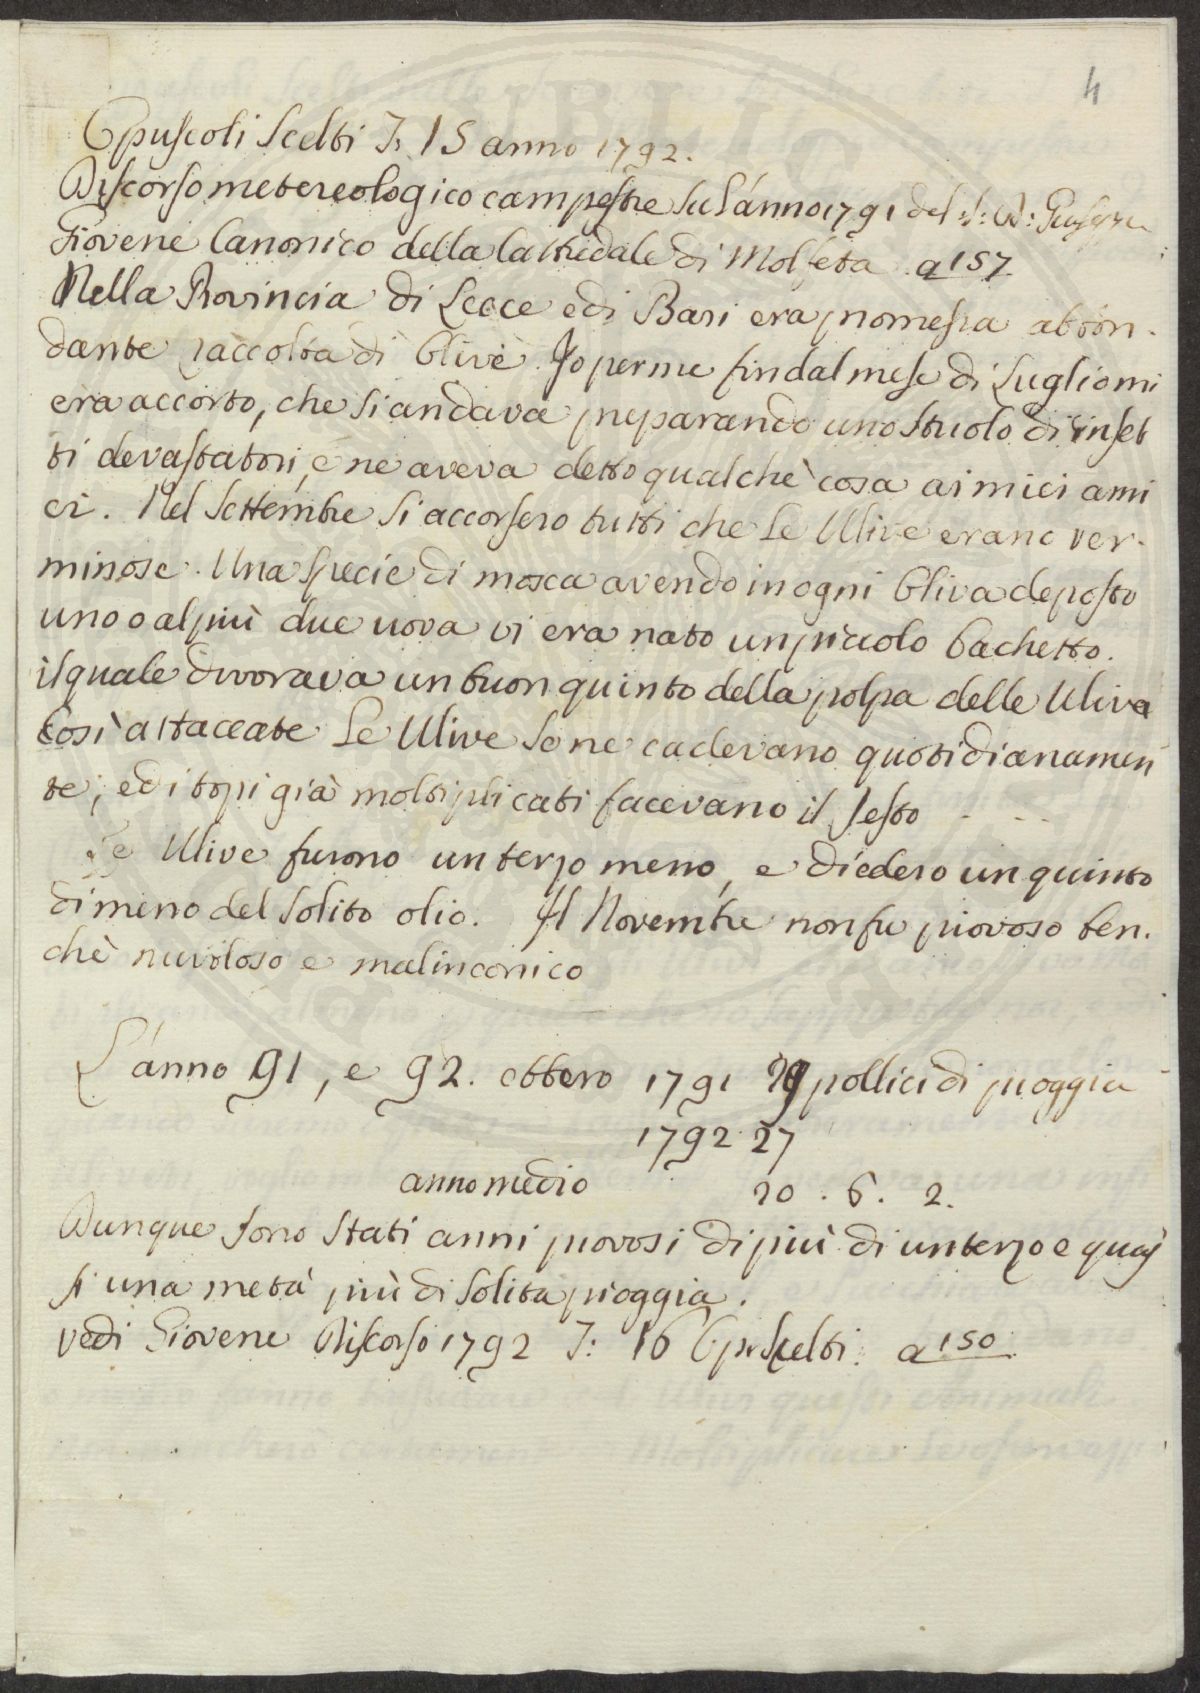 4
Opuscoli Scelti T: 15 anno 1792.
Discorso metereologico campestre sul'anno 1791 del S: D: Giuseppe
Giovene Canonico della Cattredale di Molfeta a 157
Nella Provincia di Lecce e di Bari era promessa abbon-
dante raccolta di Olive. Io per me fin dal mese di Luglio mi
era accorto, che si andava preparando uno stuolo di inset
ti devastatori, e ne aveva detto qualche cosa ai miei ami
ci. Nel Settembre si accorsero tutti che le Ulive erano ver-
minose. Una specie di mosca avendo in ogni Oliva deposto
uno o al più due uova vi era nato un piccolo bachetto.
il quale divorava un buon quinto della polpa delle Uliva
Così attaccate Le Ulive se ne cadevano quotidianamen
te, ed i topi già moltiplicati facevano il resto - - -
Le Ulive furono un terzo meno, e diedero un quinto
di meno del solito olio. Il Novembre non fu piovoso ben-
chè nuvoloso e malinconico
L'anno 91, e 92. ebbero 1791 29 pollici di pioggia
1792 27
anno medio 20 . 6 . 2.
Dunque sono stati anni piovosi di più di un terzo e quas
si una metà più di solita pioggia.
vedi Giovene Discorso 1792 T: 16 Op: Scelti. a 150